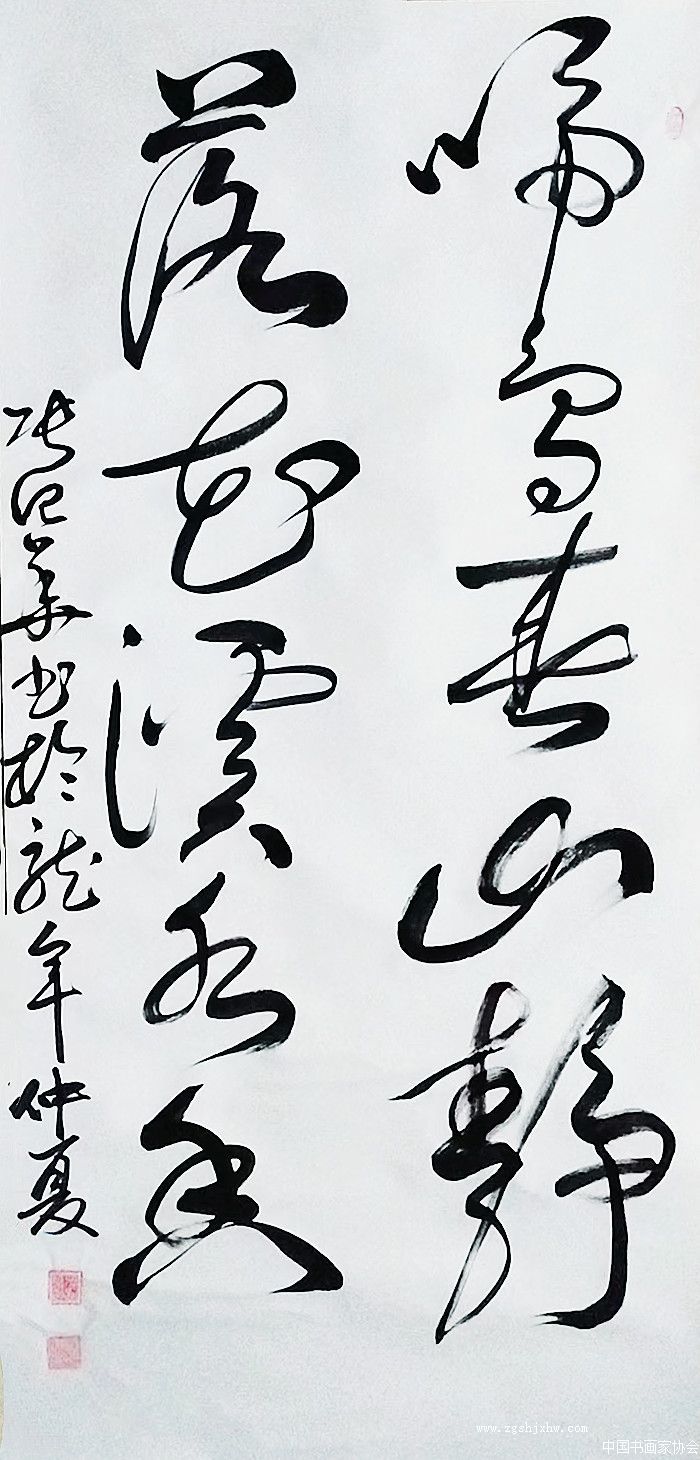 啼鸟春山静
落花溪水香
张记荣书于龙年仲夏
www.zgshjxhw.com
中国书画家协会